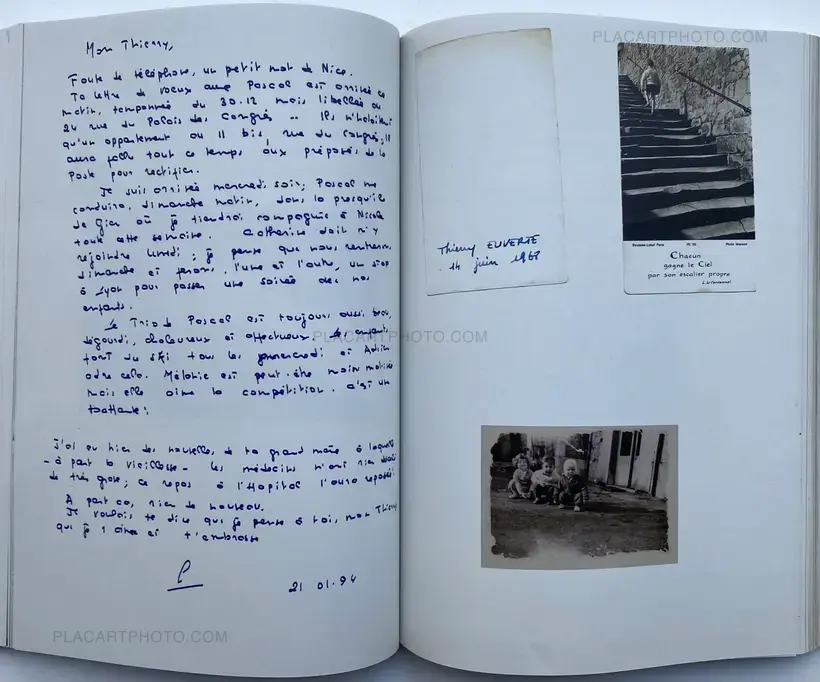 PLACARTPHOTO.COM
Mon Thierry,
Faute de téléphone, un petit mot de Nice.
Ta lettre de voeux aux Pascal est arrivée ce
matin, tamponnée du 30.12 mais libellée au
24 rue du Palais des Congrès .. Ils n'habitent
qu'un appartement au 11 bis, rue du Congrès; Il
aura fallu tout ce temps aux préposés de la
Poste pour rectifier.
Je suis arrivée mercredi soir; Pascal me
conduira, dimanche matin, dans la presqu'île
de Gien où je tiendrai compagnie à Nicole
toute cette semaine. Catherine doit m'y
rejoindre lundi; je pense que nous rentrerons
dimanche et ferons, l'une et l'autre, un stop
à Lyon pour passer une soirée chez nos
enfants.
Le Trio de Pascal est toujours aussi beau,
dégourdi, chaleureux et affectueux. Les enfants
font du ski tous les mercredi et Adrien
adore cela. Mélanie est peut-être moins motivée
mais elle aime la compétition. c'est une
battante!
J'ai eu hier des nouvelles de ta grand mère à laquelle
- à part la vieillesse - les médecins n'ont rien
de très grave; ce repos à l'Hopital l'aura reposée!
A part ça, rien de nouveau.
Je voulais te dire que je pense à toi, mon Thierry
que je t'aime et t'embrasse
21 01.94
PLACARTPHOTO.COM
PLACARTPHOTO.COM
Thierry EUVERTE
14 juin 1968
Chacun
gagne le Ciel
par son escalier propre
PLACARTPHOTO.COM